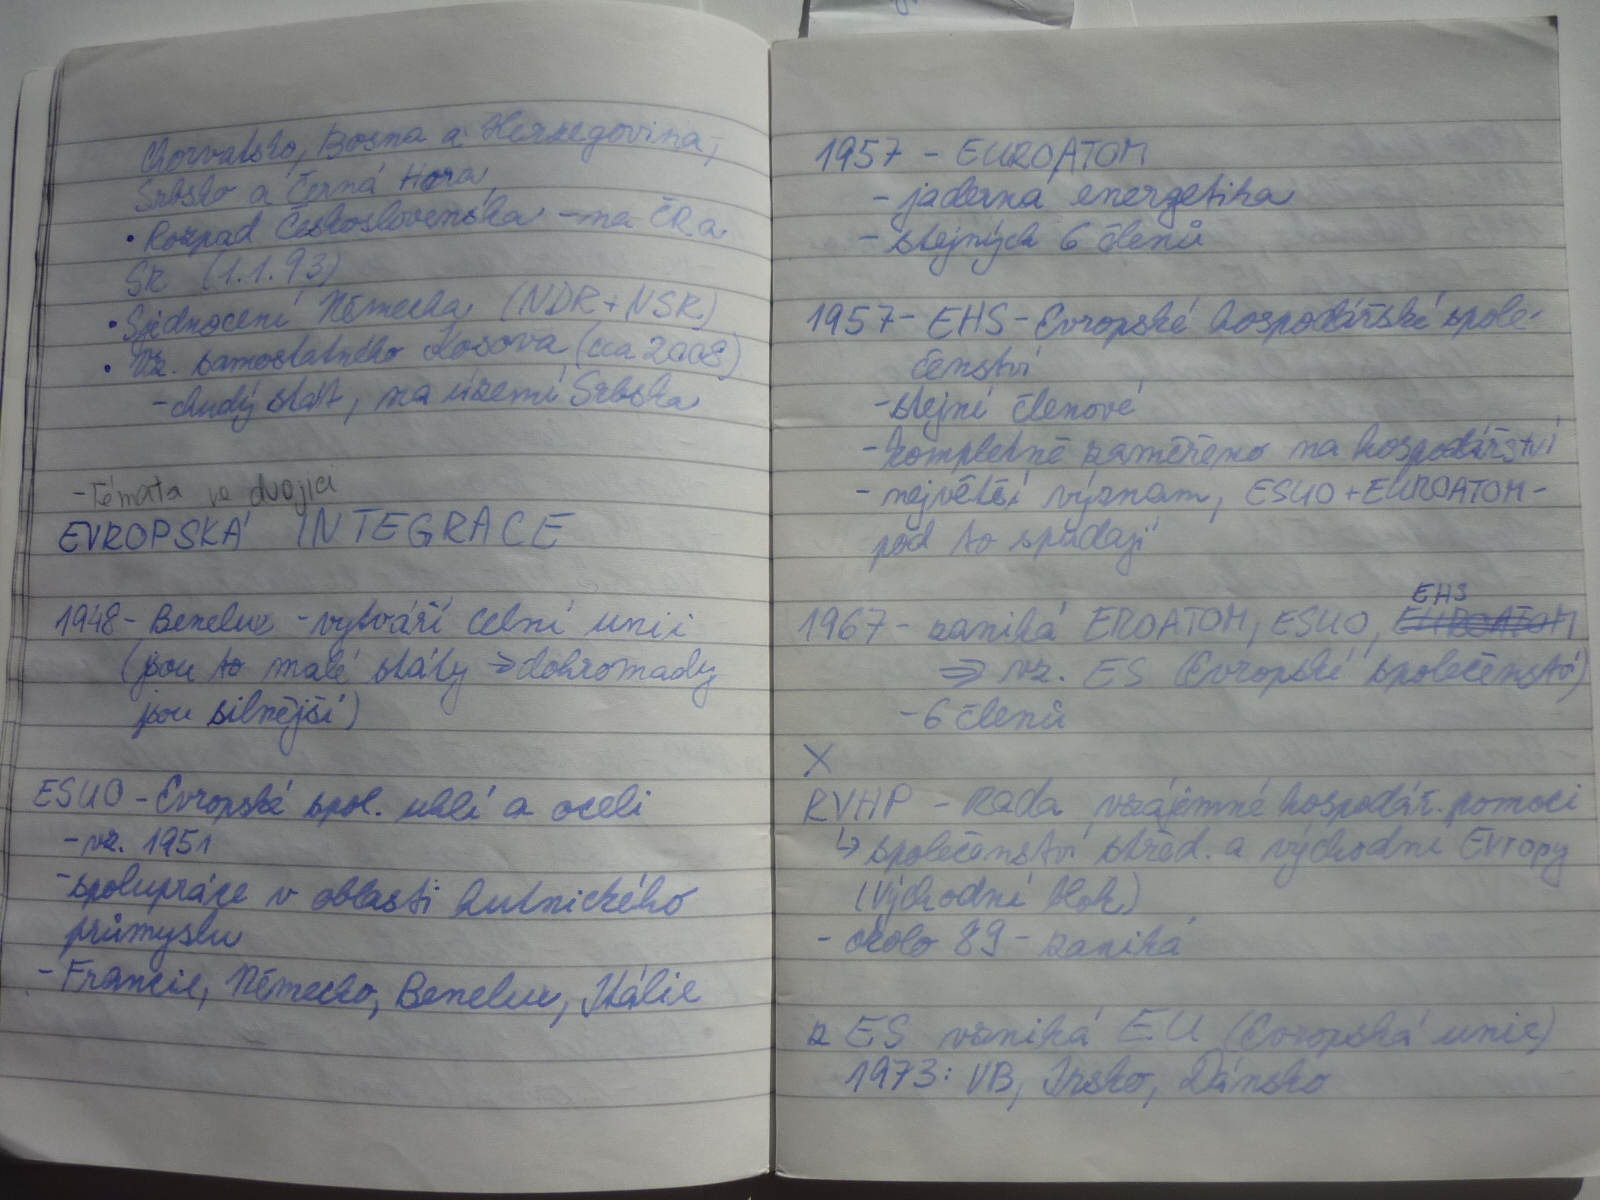 Chorvatsko, Bosna a Herzegovina,
Srbsko a Černá Hora
• Rozpad Československa - na ČR a
SR (1.1.93)
• Sjednocení Německa (NDR + NSR)
• Vz. samostatného Kosova (cca 2008)
- chudý stát, na území Srbska
- Témata ve dvojici
EVROPSKÁ INTEGRACE
1948 - Benelux - vytváří celní unii
(jsou to malé státy ⇒ dohromady
jsou silnější)
ESUO - Evropské spol. uhlí a oceli
- vz. 1951
- spolupráce v oblasti hutnického
průmyslu
- Francie, Německo, Benelux, Itálie
1957 - EUROATOM
- jaderná energetika
- stejných 6 členů
1957 - EHS - Evropské hospodářské spole-
čenství
- stejní členové
- kompletně zaměřeno na hospodářství
- největší význam, ESUO + EUROATOM -
pod to spadají
EHS
1967 - zaniká EROATOM, ESUO, EUROATOM
⇒ vz. ES (Evropské společenství)
- 6 členů
X
RVHP - Rada vzájemné hospodář. pomoci
↳ společenství střed. a východní Evropy
(Východní blok)
- okolo 89 - zaniká
z ES vzniká EU (Evropská unie)
1973: VB, Irsko, Dánsko